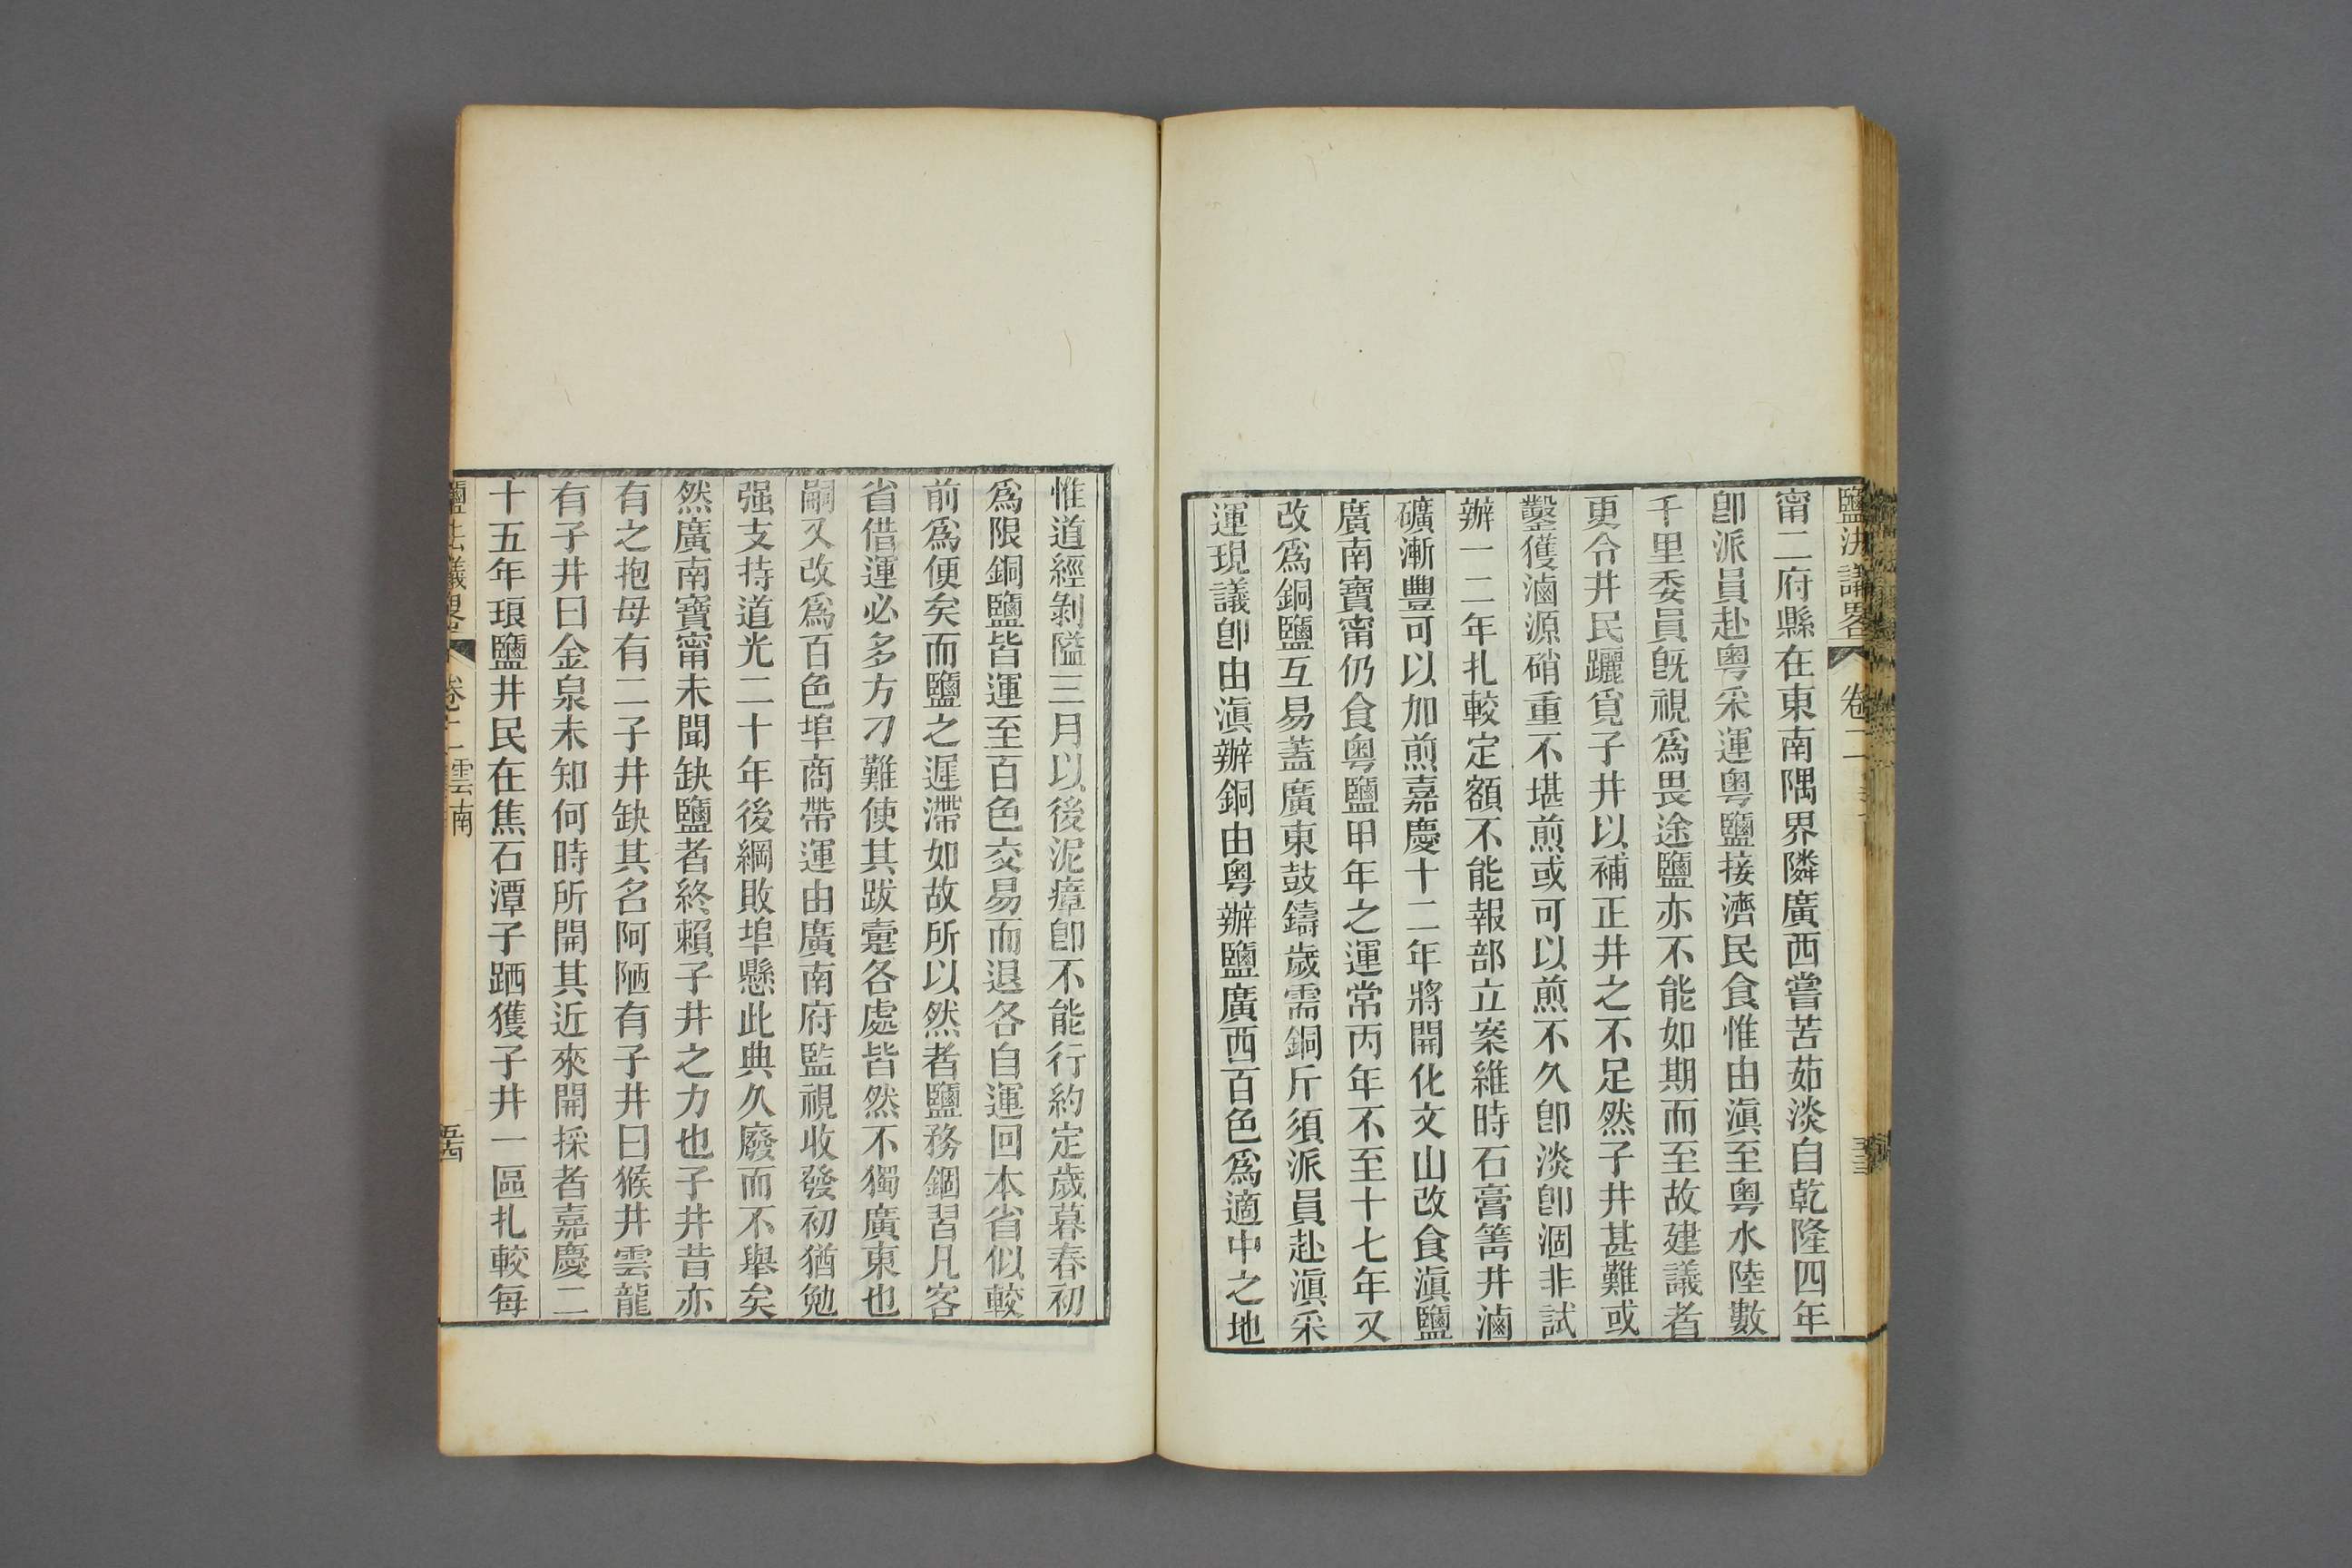 鹽法議畧 卷二
甯二府縣在東南隅界隣廣西嘗苦茹淡自乾隆四年
卽派員赴粵采運粵鹽接濟民食惟由滇至粵水陸數
千里委員旣視爲畏途鹽亦不能如期而至故建議者
更令井民躧覓子井以補正井之不足然子井甚難或
鑿獲滷源硝重不堪煎或可以煎不久卽淡卽涸非試
辦一二年扎較定額不能報部立案維時石膏箐井滷
礦漸豐可以加煎嘉慶十二年將開化文山改食滇鹽
廣南寶甯仍食粵鹽甲年之運常丙年不至十七年又
改爲銅鹽互易蓋廣東鼓鑄歲需銅斤須派員赴滇采
運現議卽由滇辦銅由粵辦鹽廣西百色爲適中之地
惟道經剝隘三月以後泥瘴卽不能行約定歲暮春初
爲限銅鹽皆運至百色交易而退各自運回本省似較
前爲便矣而鹽之遲滯如故所以然者鹽務錮習凡客
省借運必多方刁難使其跋疐各處皆然不獨廣東也
嗣又改爲百色埠商帶運由廣南府監視收發初猶勉
强支持道光二十年後綱敗埠懸此典久廢而不舉矣
然廣南寶甯未聞缺鹽者終賴子井之力也子井昔亦
有之抱母有二子井缺其名阿陋有子井曰猴井雲龍
有子井曰金泉未知何時所開其近來開採者嘉慶二
十五年琅鹽井民在焦石潭子跴獲子井一區扎較每
鹽法議畧 卷二 雲南 五四